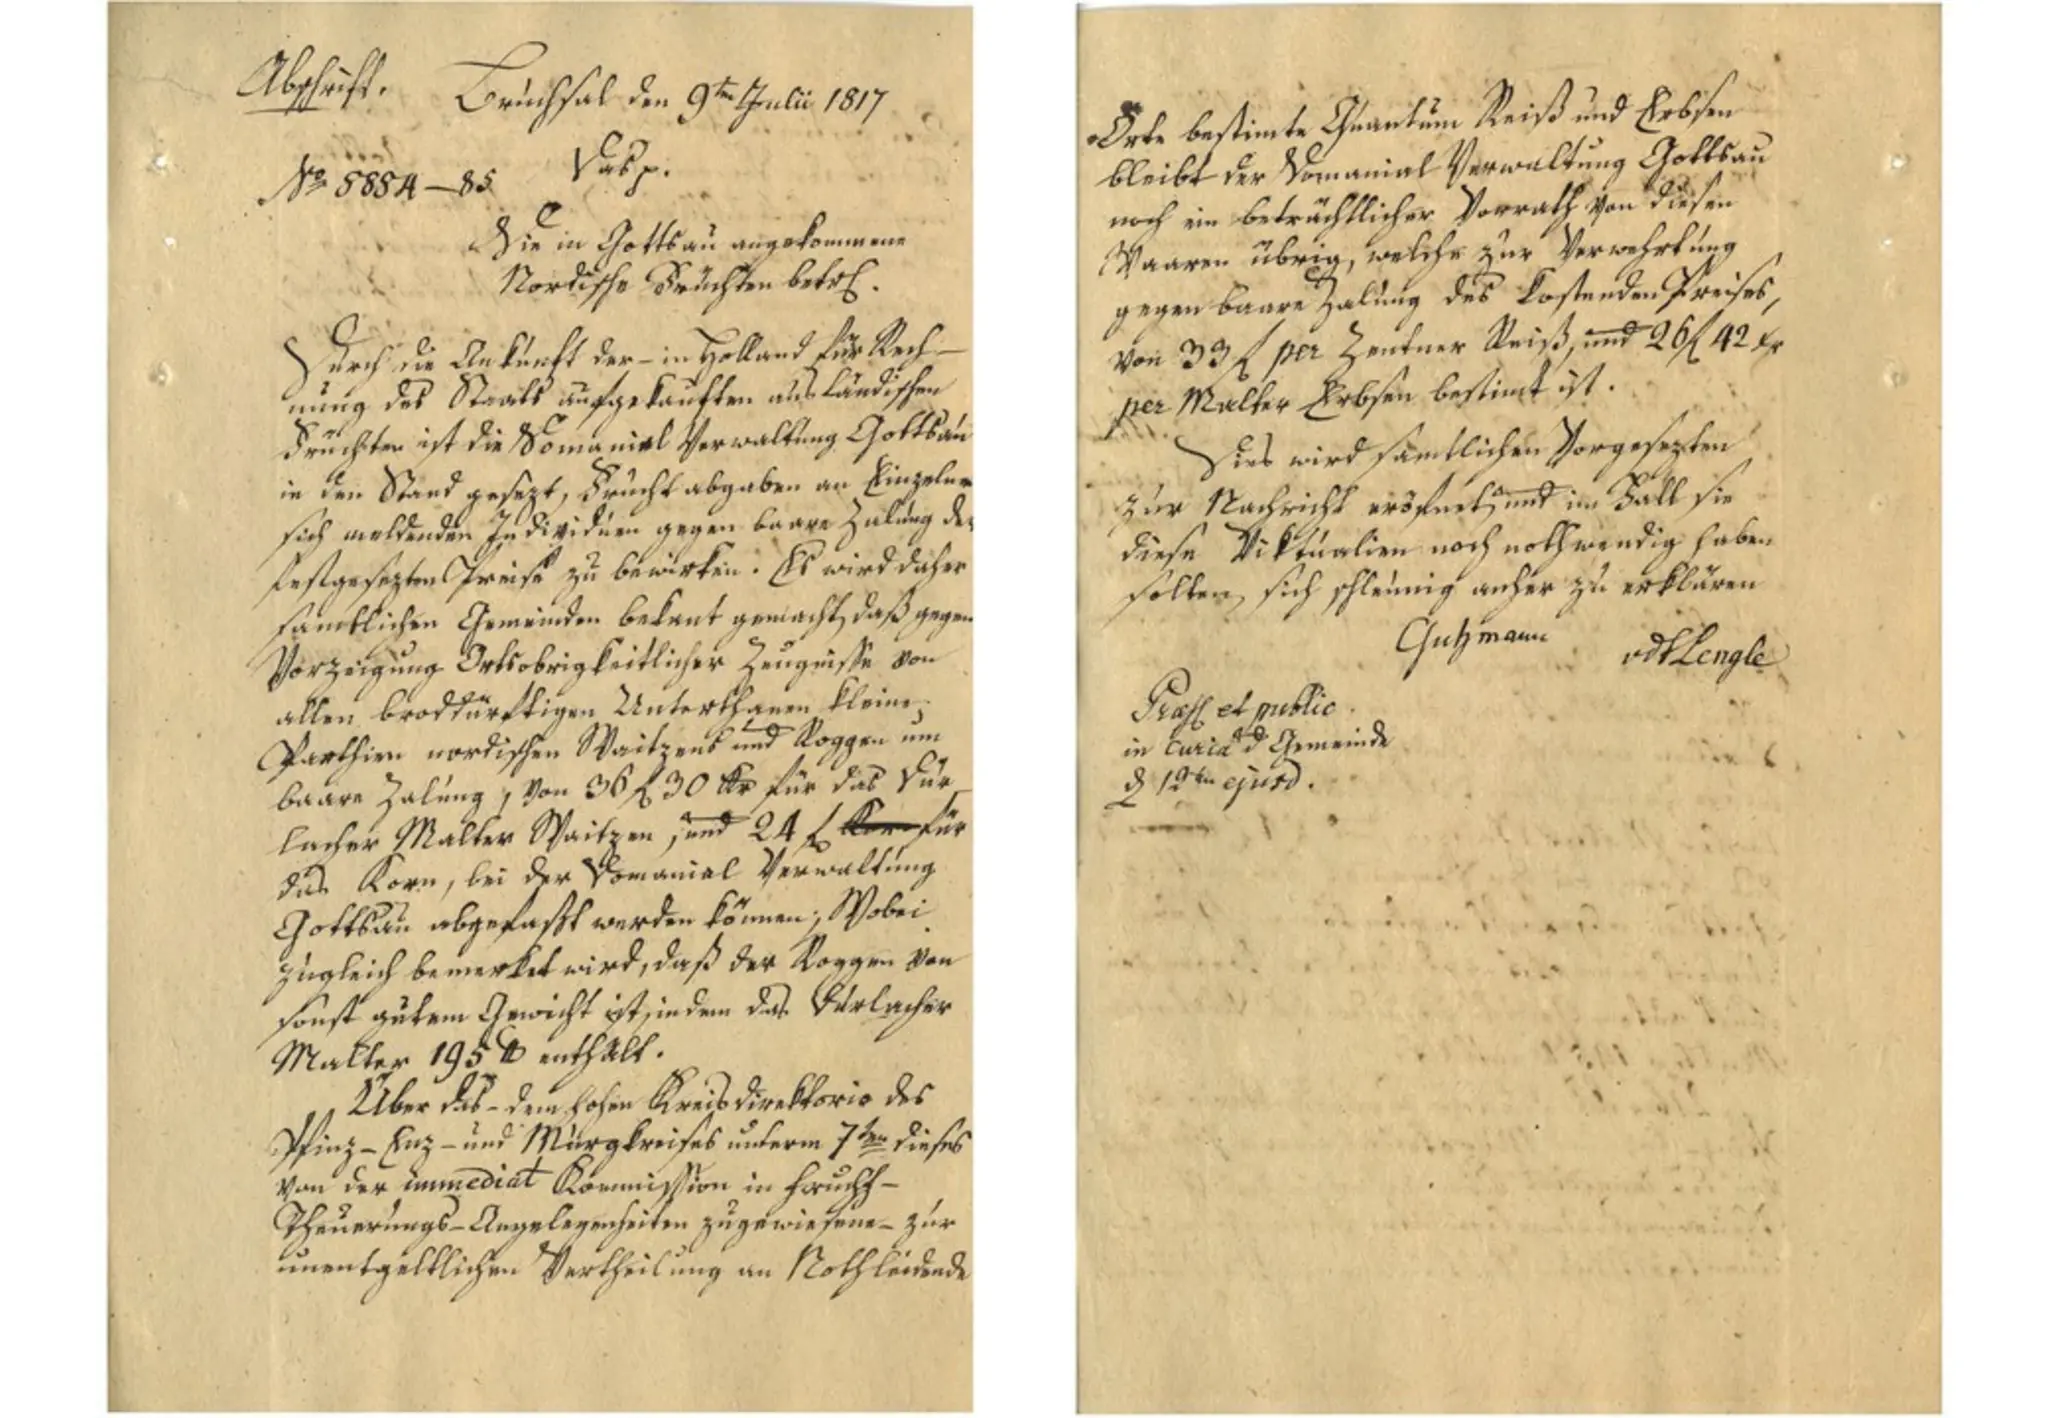 Abschrift. Bruchsal den 9ten Julii 1817
No 5884–85. Das p.
Die in Gottsau angekommene
Nordische Früchten betrf.
Durch die Ankunft der – in Holland für Rech–
nung des Staats aufgekauften ausländischen
Früchten ist die Domanial Verwaltung Gottsau
in den Stand gesezt, Frucht abgaben an Einzelne
sich meldenden Individuen gegen baare Zalung der
festgesezten Preise zu bewirken. Es wird daher
sämtlichen Gemeinden bekant gemacht, daß gegen
Vorzeigung Ortsobrigkeitlicher Zeugnisse von
allen broddürftigen Unterthanen kleine
Parthien nordischen Waitzens und Roggen um
baare Zalung, von 36 f 30 Kr für das Dur
lacher Malter Waitzen, und 24 f für
das Korn, bei der Domanial Verwaltung
Gottsau abgefaßt werden können; Wobei
zugleich bemerket wird, daß der Roggen von
sonst gutem Gewicht ist, indem das Durlacher
Malter 195 ℔ enthält.
Über das – dem hohen Kreisdirektorio des
Pfinz – Enz – und Murgkreises unterm 7ten dieses
von der immediat Kommission in Frucht–
Theuerungs – Angelegenheiten zugewiesene – zur
unentgeltlichen Vertheilung an Nothleidende
Orte bestimte Quantum Reiß und Erbsen
bleibt der Domanial Verwaltung Gottsau
noch ein beträchtlicher Vorrath von diesen
Waaren übrig, welche zur Verwehrtung
gegen baare Zalung des kostenden Preises,
von 33 f per Zentner Reiß, und 26 f 42 Kr
per Malter Erbsen bestimt ist.
Dies wird sämtlichen Vorgesezten
zur Nachricht eröfnet, und im Fall sie
diese Viktualien noch nothwendig haben
sollten, sich schleunig anher zu erklären
Guhmann vdt Lengle
et public.
in curia d Gemeinde
ejusd.